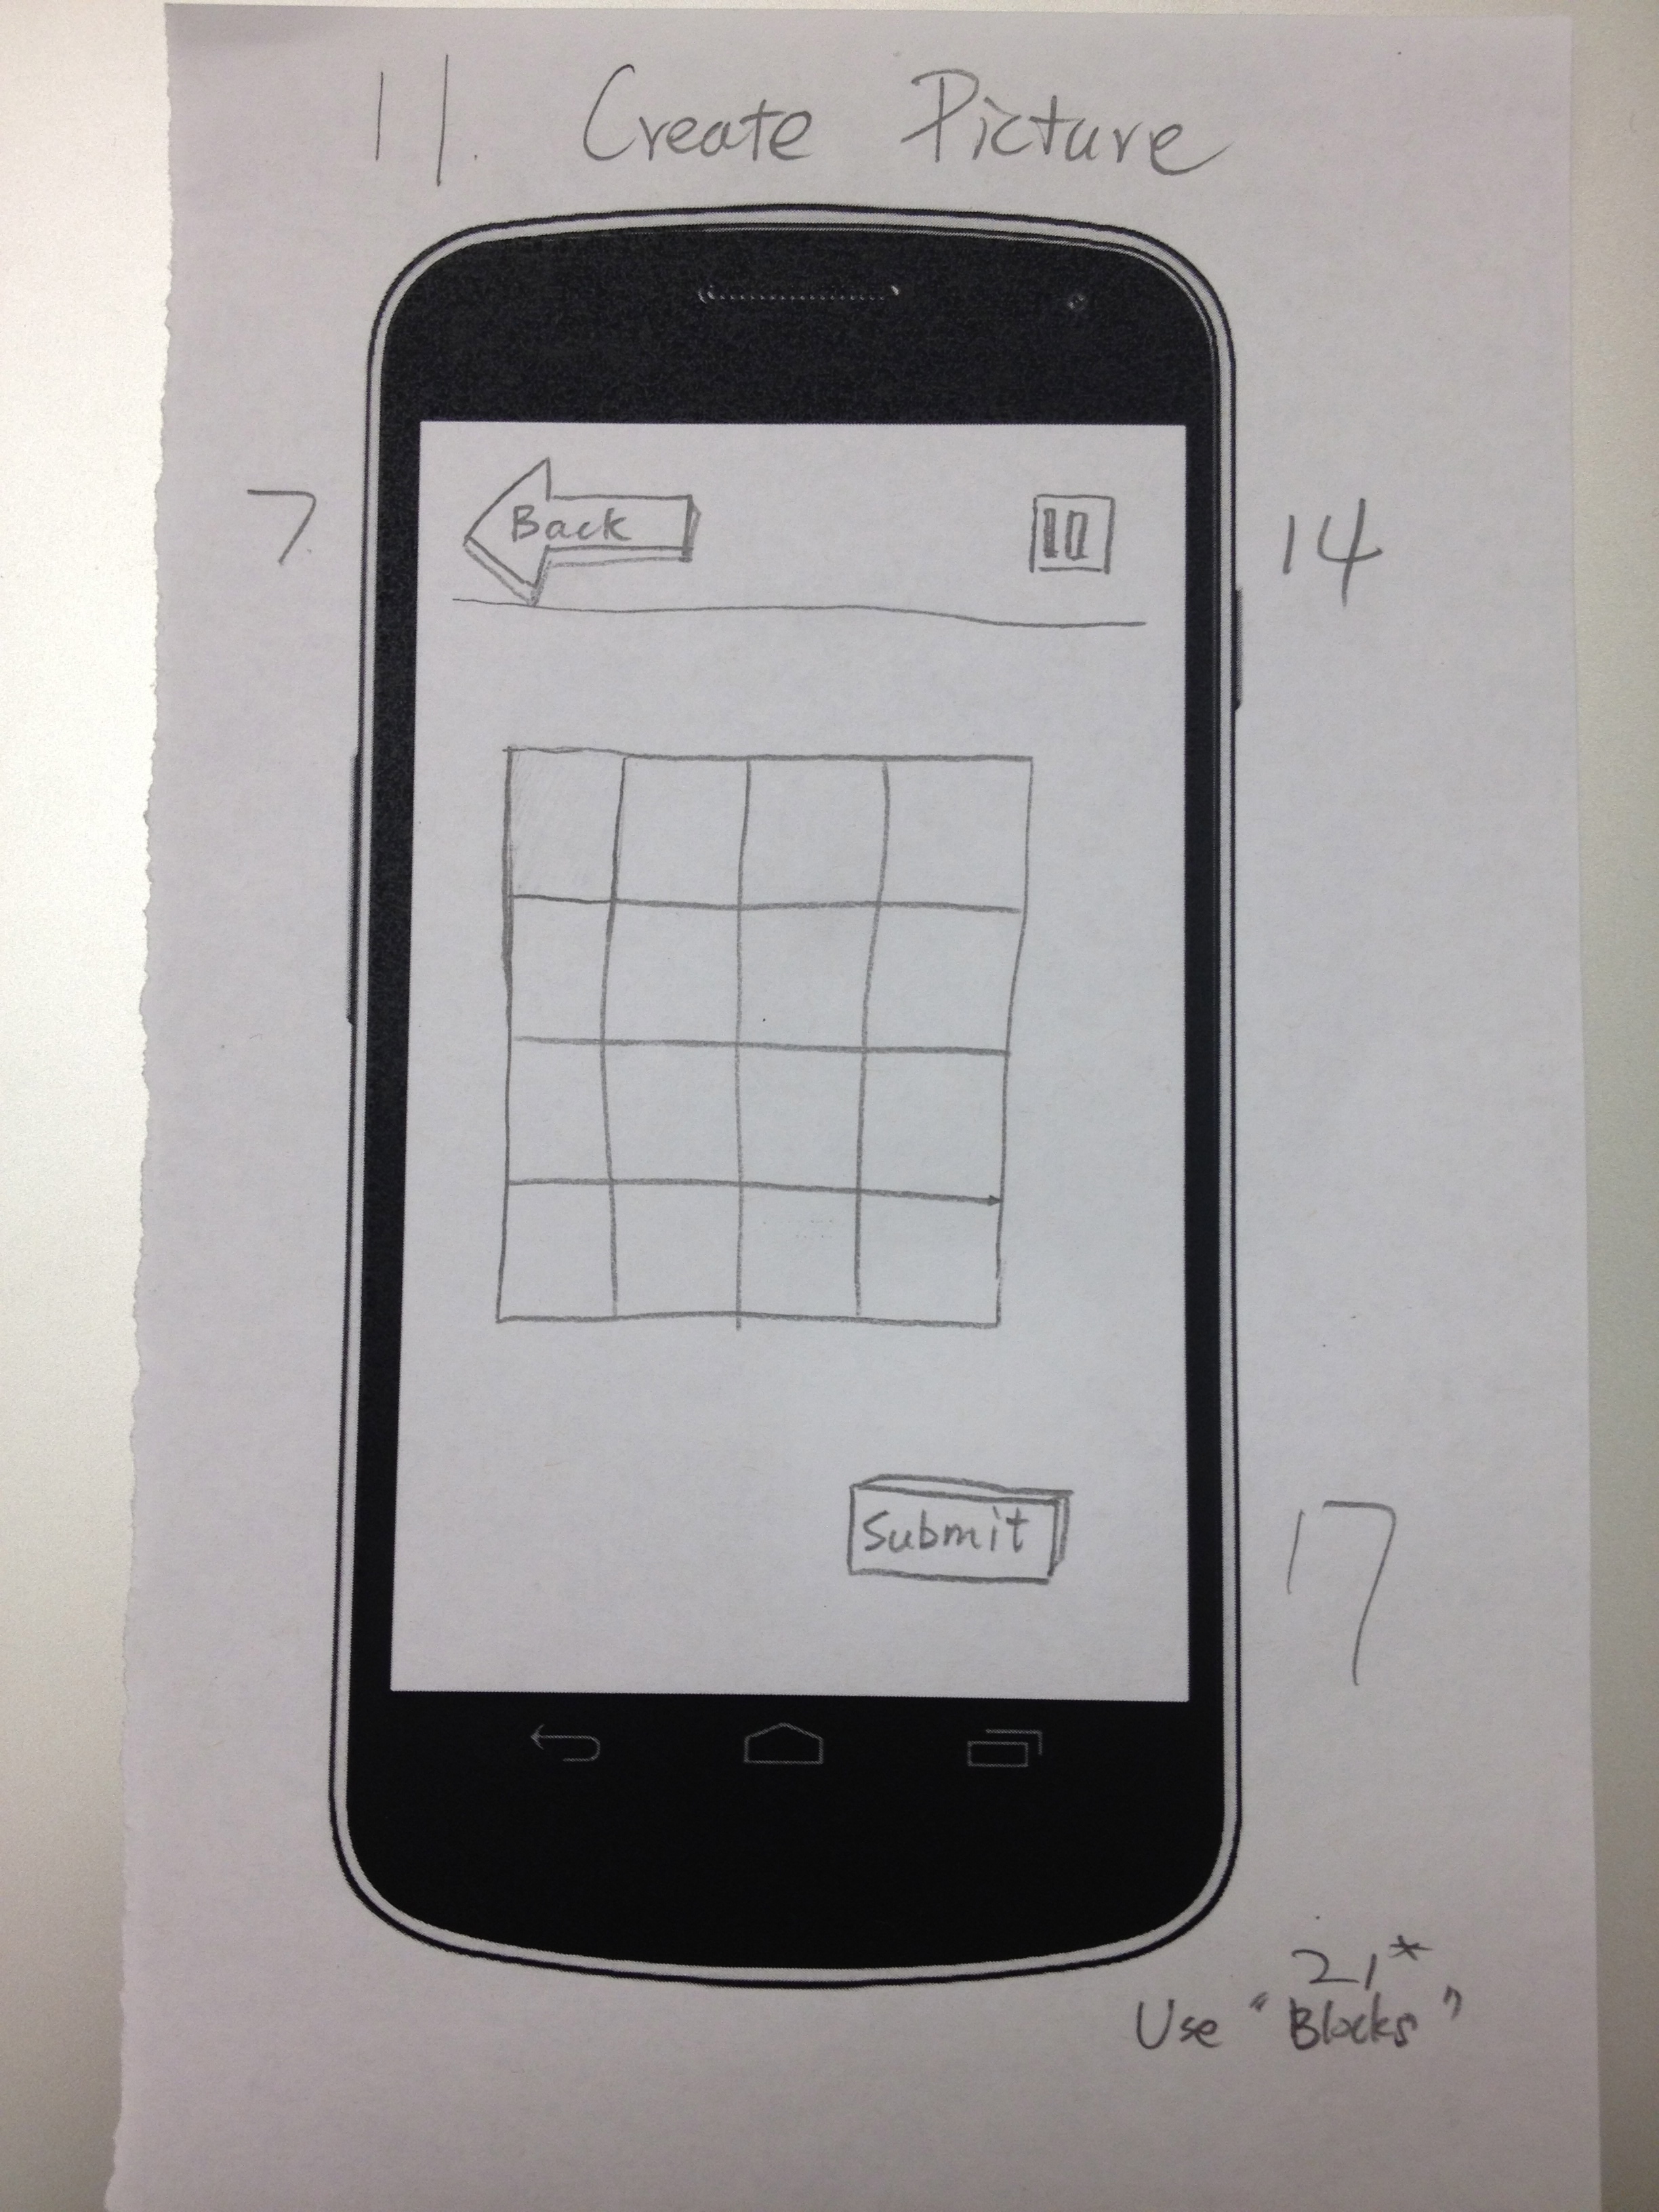 11. Create Picture
7
Back
14
Submit
17
21*
Use "Blocks"